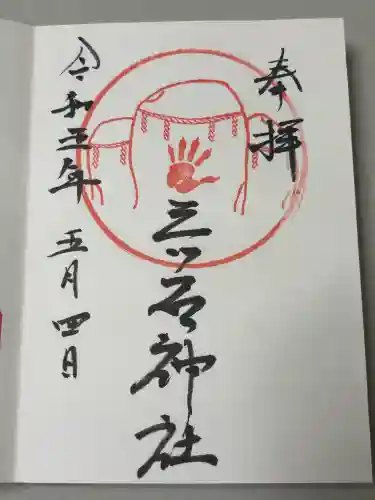 奉拝
三ツ石神社
令和五年 五月四日